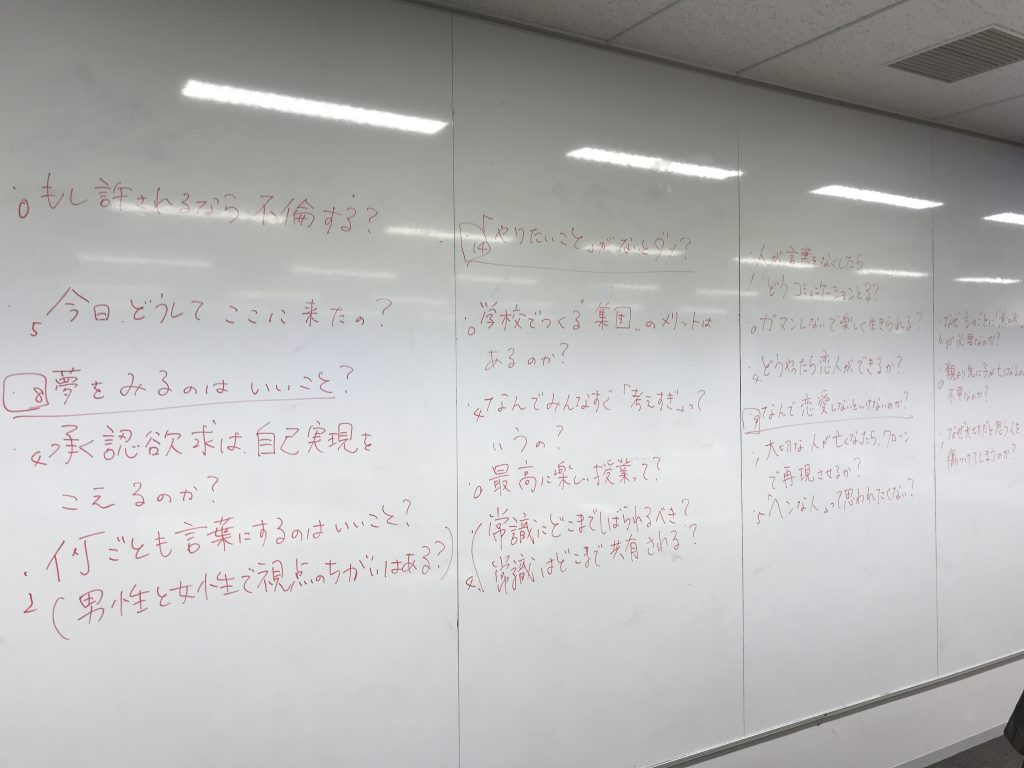 ・もし許されるなら不倫する?
0
・今日どうしてここに来たの?
5
・夢をみるのはいいこと?
8
・承く認欲求は自己実現を
4
こえるのか?
・何ごとも言葉にするのはいいこと?
2
(男性と女性で視点のちがいはある?)
・「やりたいこと」がないとダメ?
14
・学校でつくる"集団"のメリットは
0
あるのか?
・なんでみんなすぐ「考えすぎ」って
4
いうの?
・最高に楽しい授業って?
0
常識にどこまでしばられるべき?
常識はどこまで共有される?
4
・人が言葉をなくしたら
1
どうコミュニケーションとる?
・ガマンしないで楽しく生きられる?
0
・どうやったら恋人ができるか?
4
・なんで恋愛しないといけないのか?
・大切な人が亡くなったら、クローン
で再現させるか?
・「ヘンな人」って思われたくない?
5
・なぜものごとに
6
が必要なのか?
・親より先に子が亡くなるの
0
不幸なのか?
・なぜ大切だと思う人を
傷つけてしまうのか?